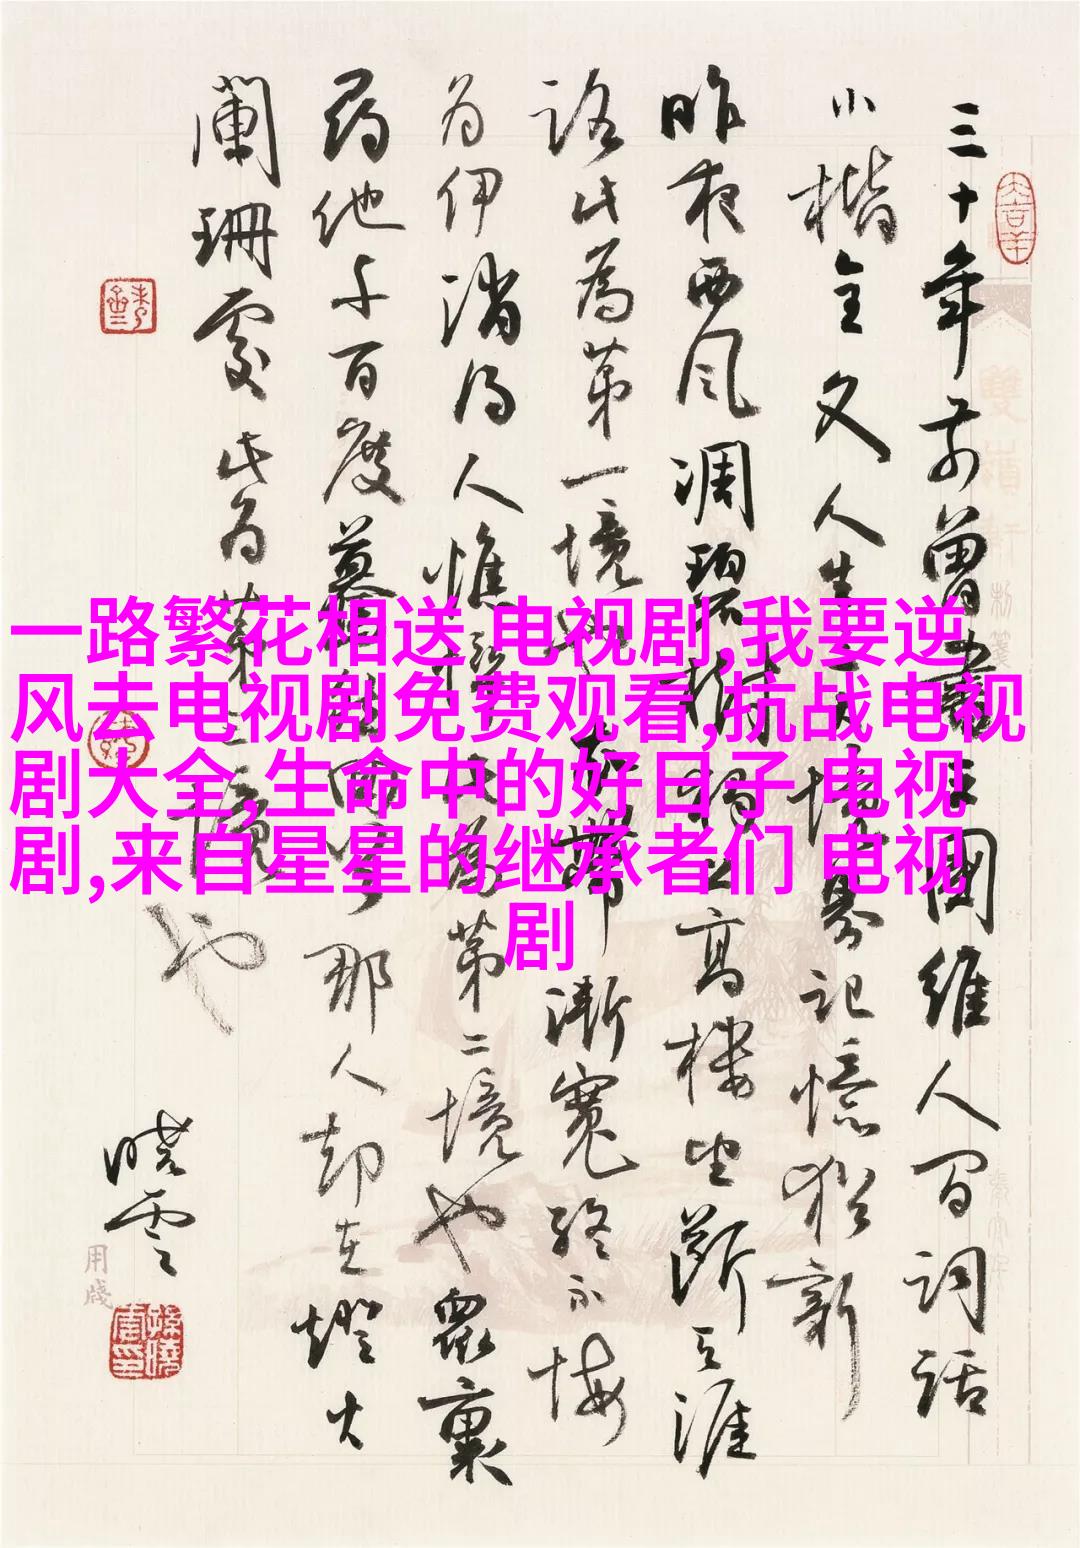 一路繁花相送 电视剧,我要逆
风去电视剧免费观看,抗战电视
剧大全,生命中的好日子 电视
剧,来自星星的继承者们 电视
剧
三十年前曾書王國維人间词話
小楷全文人生三大境界记憶猶新
昨夜西风凋碧樹獨上高樓望斷天涯
路此為第一境也衣帶漸寬終不悔
为伊消得人憔悴此為第二境也眾裏
尋他千百度驀然回首那人却在燈火
闌珊處此为第三境也
晓雲
用笺